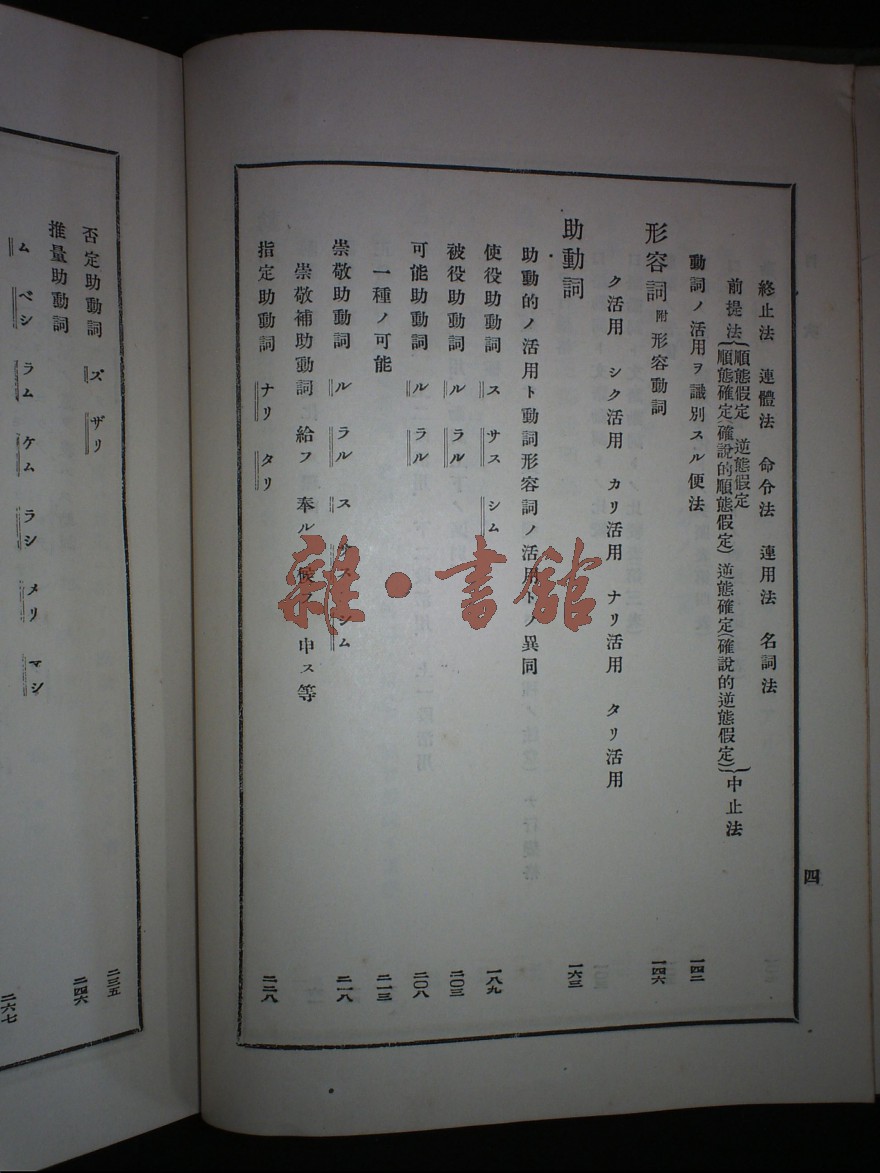 終止法 連體法 命令法 連用法 名詞法
前提法{順態假定 逆態假定
順態確定(確說的順態假定) 逆態確定(確說的逆態假定)}中止法
動詞ノ活用ヲ識別スル便法 一四二
形容詞 附形容動詞 一四六
ク活用 シク活用 カリ活用 ナリ活用 タリ活用
助動詞 一六三
助動的ノ活用ト動詞形容詞ノ活用トノ異同
使役助動詞 ス サス シム 一八九
被役助動詞 ル ラル 二〇三
可能助動詞 ル ラル 二〇八
一種ノ可能 二一三
崇敬助動詞 ル ラル ス サス シム 二一八
崇敬補助動詞 給フ 奉ル 候フ 申ス等
指定助動詞 ナリ タリ 二二八
四
否定助動詞 ズ ザリ 二三五
推量助動詞 二四六
ム ベシ ラム ケム ラシ メリ マシ
二六七
雜·書館